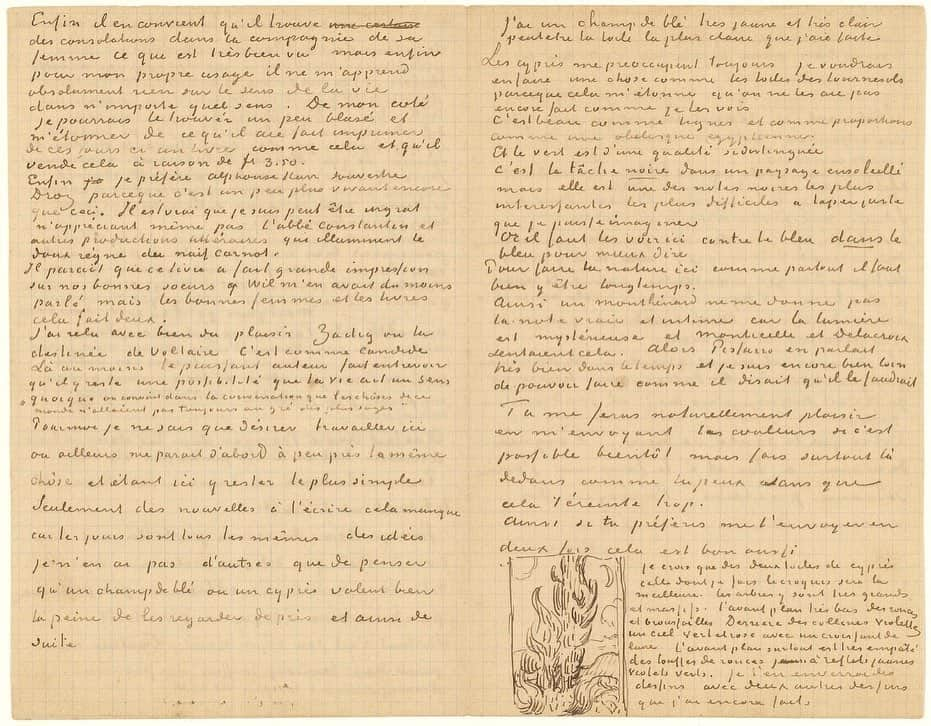 Enfin il en convient qu'il trouve une certaine
des consolations dans la compagnie de sa
femme ce que est très bien vu mais enfin
pour mon propre usage il ne m'apprend
absolument rien sur le sens de la vie
dans n'importe quel sens. De mon coté
je pourrais le trouver un peu blasé et
m'étonner de ce qu'il aie fait imprimer
de ces jours ci un livre comme cela et qu'il
vende cela à raison de fr 3.50.
Enfin je préfère alphonse Karr souvestre
Droz parceque c'est un peu plus vivant encore
que ceci. Il est vrai que je suis peut être ingrat
n'appréciant même pas l'abbé Constantin et
autres productions littéraires que illuminent le
doux règne du naïf Carnot.
Il parait que ce livre a fait grande impression
sur nos bonnes soeurs Wil m'en avait du moins
parlé, mais les bonnes femmes et les livres
cela fait deux.
J'ai relu avec bien du plaisir Zadig ou la
destinée de Voltaire C'est comme Candide
Là au moins le puissant auteur fait entrevoir
qu'il y reste une possibilité que la vie ait un sens
"quoique on convint dans la conversation que les choses de ce
monde n'allaient pas toujours au gré des plus sages"
Pour moi je ne sais que désirer travailler ici
ou ailleurs me parait d'abord à peu près la même
chose et étant ici y rester le plus simple
Seulement des nouvelles à t'écrire cela manque
car les jours sont tous les mêmes des idées
je n'en ai pas d'autres que de penser
qu'un champ de blé ou un cyprès valent bien
la peine de les regarder de près et ainsi de
suite
J'ai un champ de blé très jaune et très clair
peutetre la toile la plus claire que j'aie faite
Les cyprès me preoccupent toujours je voudrais
en faire une chose comme les toiles des tournesols
parceque cela m'étonne qu'on ne les aie pas
encore fait comme je les vois
C'est beau comme lignes et comme proportions
comme une obelisque egyptienne
Et le vert est d'une qualité si distinguée
C'est la tâche noire dans un paysage ensoleillé
mais elle est une des notes noires les plus
interessantes les plus difficiles a taper juste
que je puisse imaginer
Or il faut les voir ici contre le bleu dans le
bleu pour mieux dire
Pour faire la nature ici comme partout il faut
bien y être longtemps.
Ainsi un monthénard ne me donne pas
la note vraie et intime car la lumière
est mystérieuse et monticelli et Delacroix
sentaient cela. Alors Pissarro en parlait
très bien dans le temps et je suis encore bien loin
de pouvoir faire comme il disait qu'il le faudrait
Tu me feras naturellement plaisir
en m'envoyant les couleurs si c'est
possible bientôt mais fais surtout là
dedans comme tu peux sans que
cela t'éreinte trop.
ainsi si tu préfères me l'envoyer en
deux fois cela est bon aussi
je crois que des deux toiles de cyprès
celle dont je fais le croquis sera la
meilleure. les arbres y sont très grands
et massifs. l'avant plan très bas des ronces
et broussailles Derrière des collines violettes
un ciel vert et rose avec un croissant de
lune. L'avant plan surtout est très empâté
des touffes de ronces à reflets jaunes
violets verts. je t'en enverrai des
dessins avec deux autres dessins
que j'ai encore faits